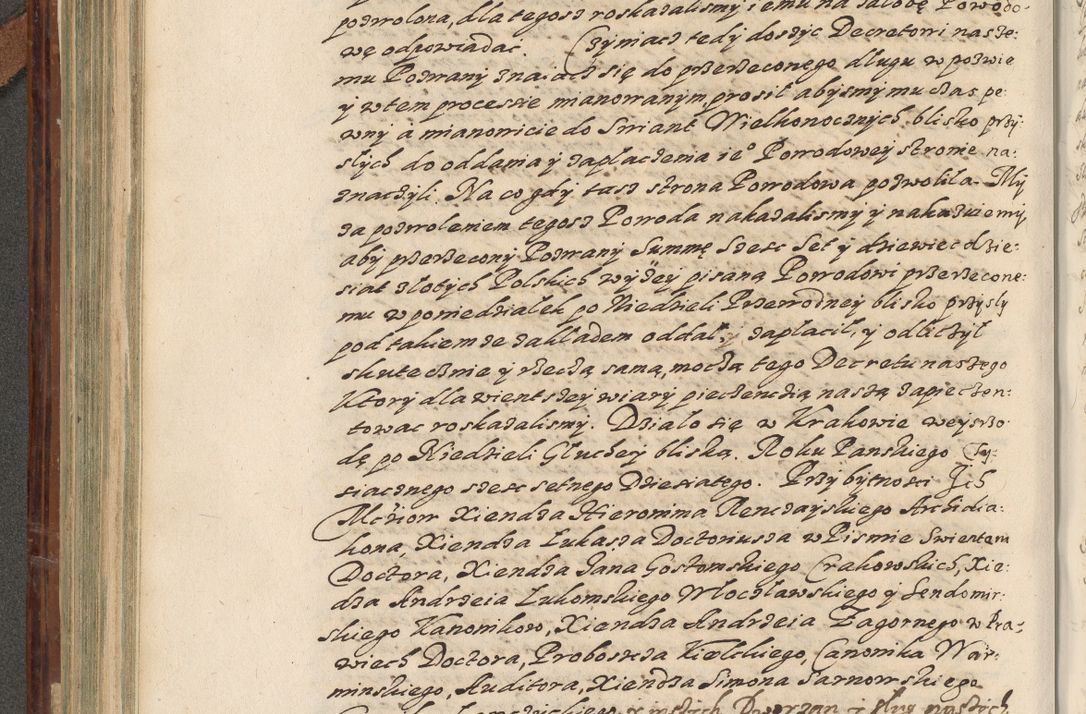 pozwolona, dla tegosz roskazalismy iemu na załobę Powodo-
wę odpowiadac. Czyniacz tedy doszyc Decretowi nasze:
mu Pozwany znaiacz się do przerzeconego dlugu w pozwie
y wtem processie mianowanym, prosił abysmy mu czas pe:
wny a mianowicie do Swiant Wielkonocznych blisko przy:
slych do oddania y zaplaczenia ie° Powodowey stronie na:
znaczyli. Na co gdy tasz strona Powodowa pozwolila. My
za pozwoleniem tegosz Powoda nakazalismy y nakazuiemy,
aby przerzeczony Pozwany Summę szesc set y dziewięcdzie:
siat złotych Polskich wyżey pisaną Powodowi przerzecone:
mu w poniedzialek po Niedzieli Przewodney blisko przysly
pod takiem ze zakladem oddał, y zaplacil, y odliczył
skutecznie y rzeczą samą, moczą tego Decretu naszego
Ktory dla wientszey wiary pieczenczią naszą zapieczen-
towac roskazalismy. Dzialo się w Krakowie we szro-
dę po Niedzieli Głuchey bliską. Roku Panskiego Ty-
siacznego szesc setnego Dziesiatego. Przy bytnosci Ich
Mciow Xiendza Hieronima Renczayskiego Archidia:
kona, Xiendza Lukasza Doctoriusza w Pismie Swientem
Doctora, Xiendza Jana Gostomskiego Crakowskich, Xie:
dza Andrzeia Lukomskiego Włocslawskiego y Sendomir:
skiego Kanonikow, Xiendza Andrzeia Zagornego w Pra-
wiech Doctora, Proboszcza Kielckiego, Canonika War:
minskiego, Auditora, Xiendza Simona Sarnowskiego
y inszich Dworzan y slug naszich